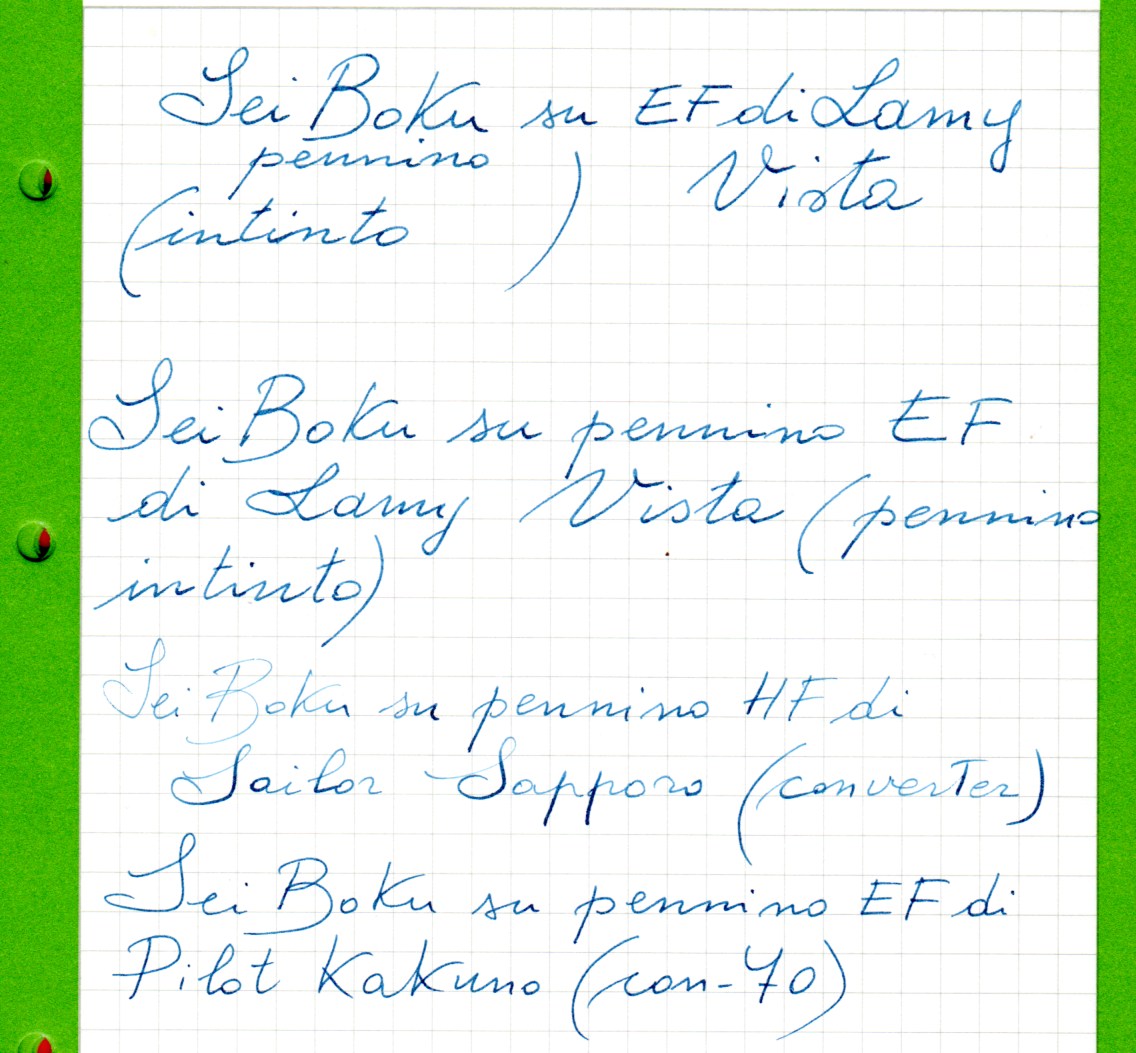 Sei Boku su EF di Lamy
pennino Vista
(intinto )
Sei Boku su pennino EF
di Lamy Vista (pennino
intinto)
Sei Boku su pennino HF di
Sailor Sapporo (converter)
Sei Boku su pennino EF di
Pilot Kakuno (con-70)